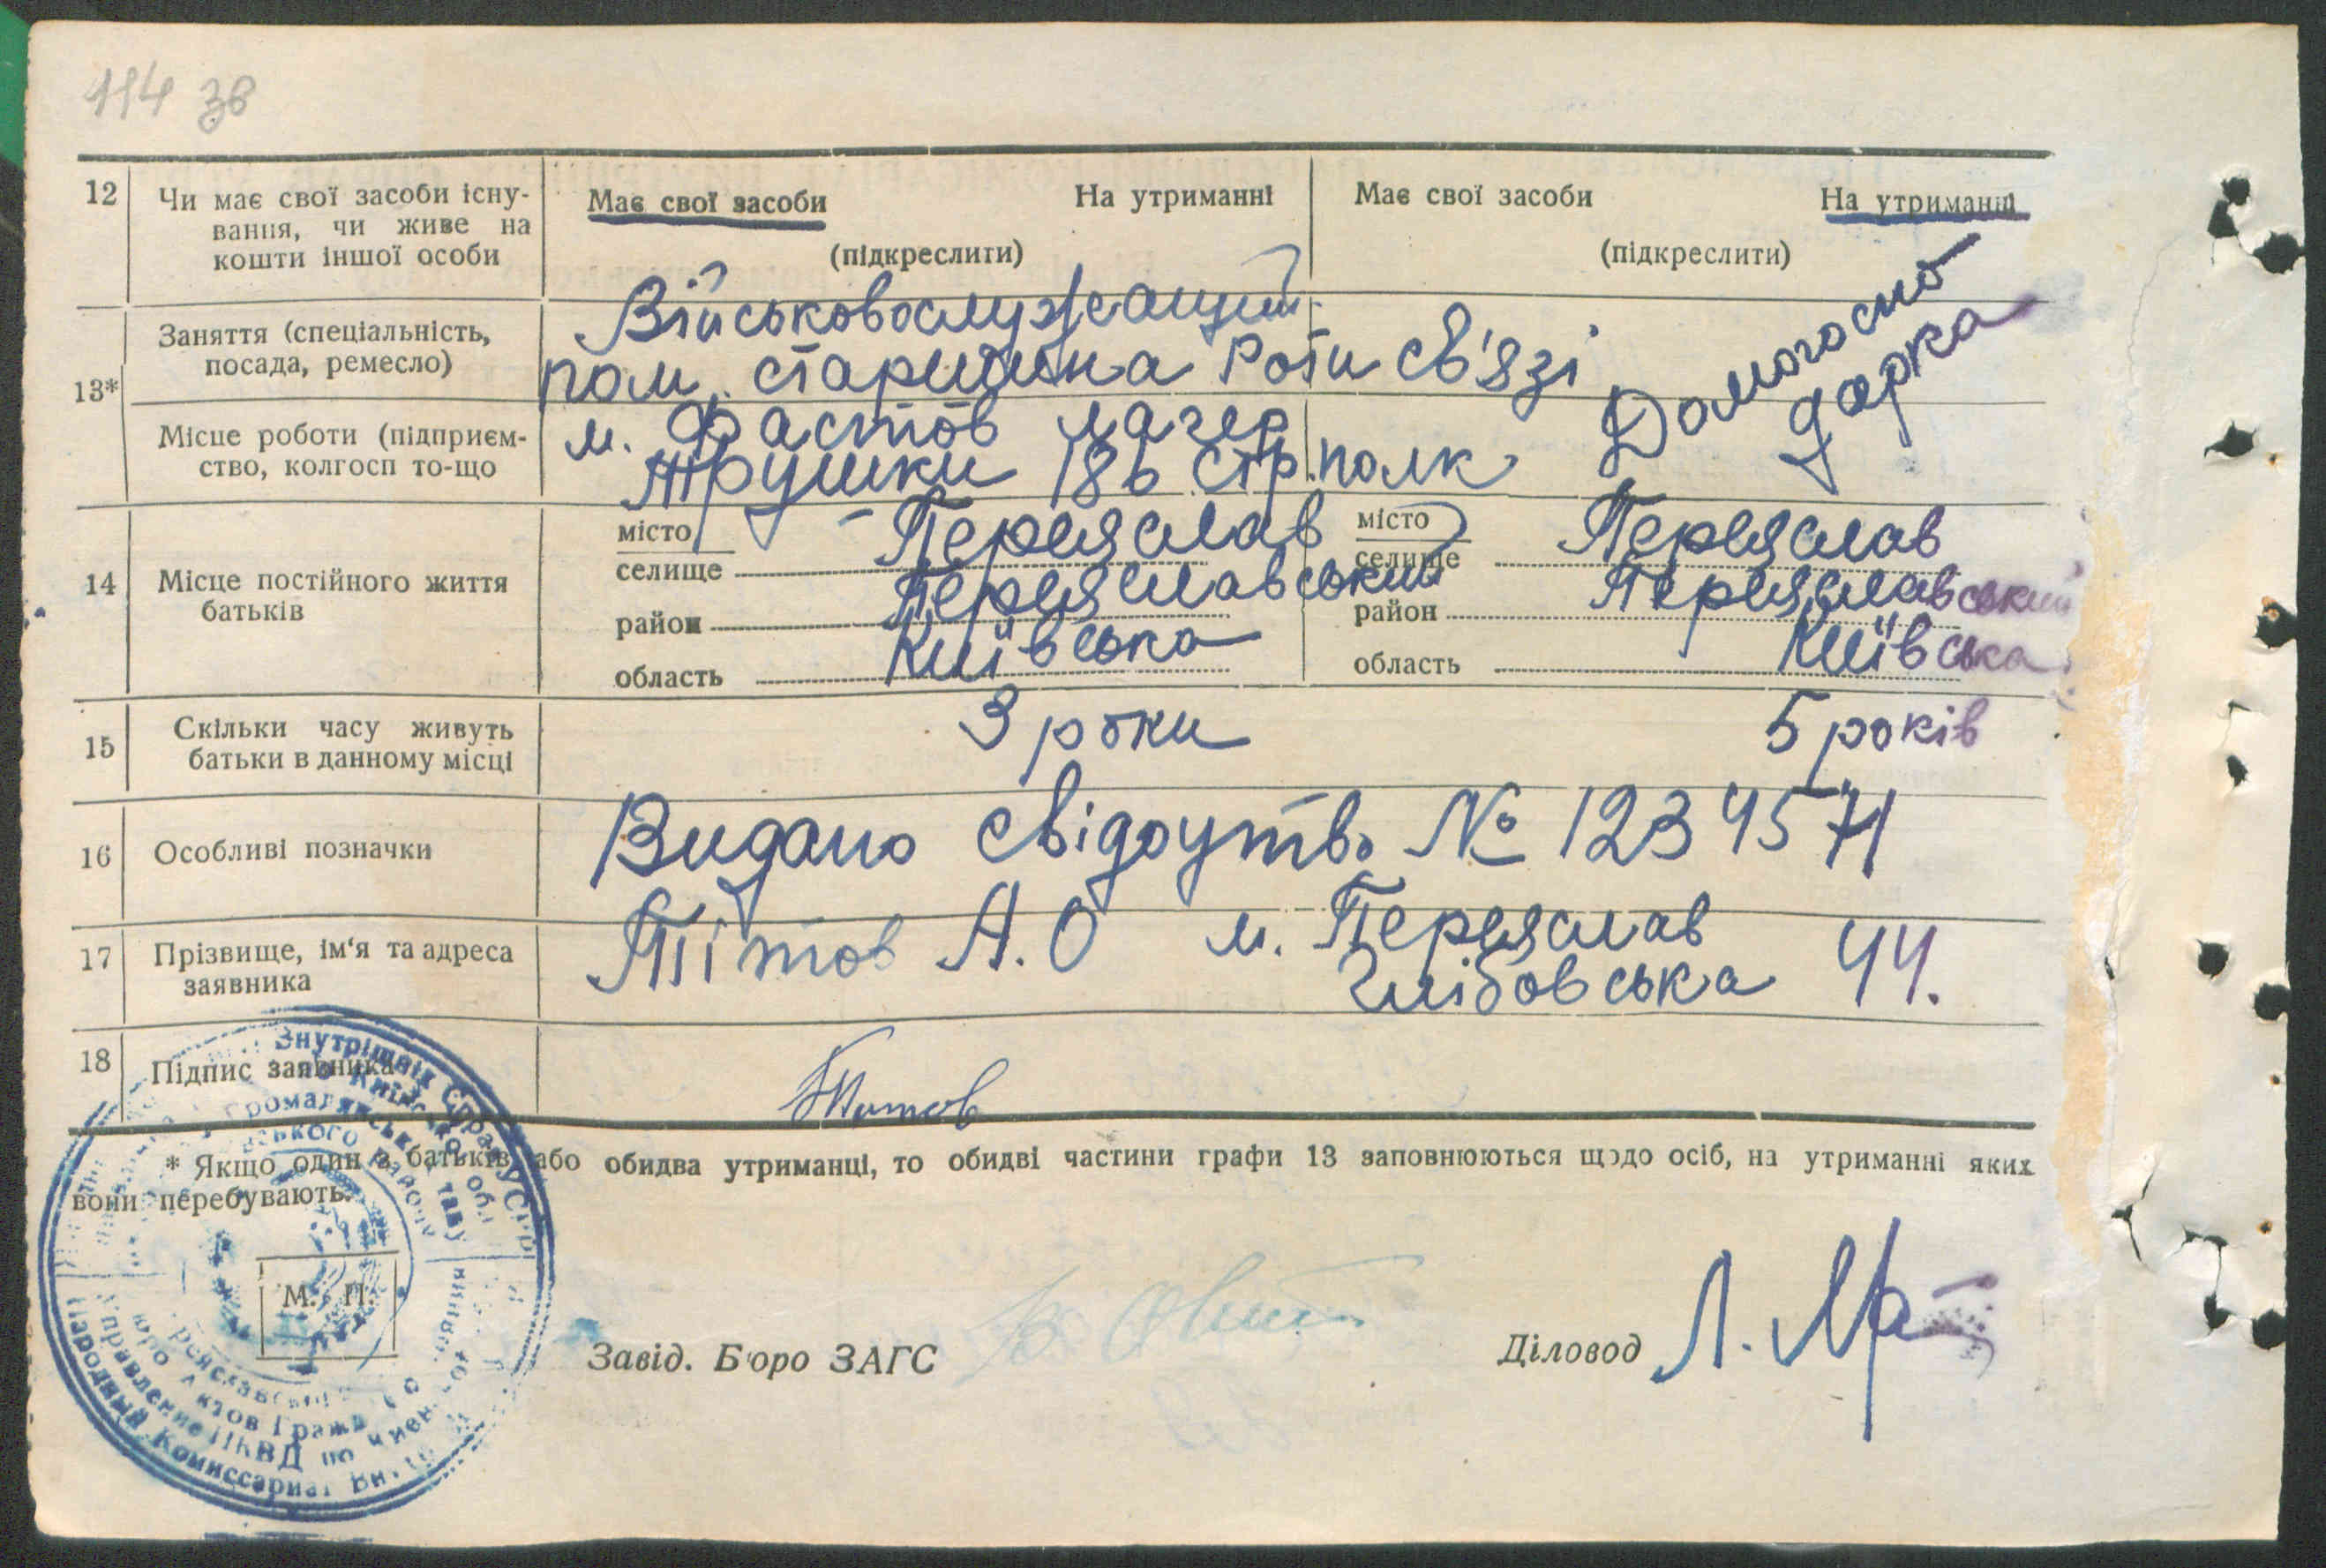 114 зв
12 Чи має свої засоби існу-
вання, чи живе на
кошти іншої особи
Має свої засоби На утриманні
(підкреслити)
Має свої засоби На утриманні
(підкреслити)
13*
Заняття (спеціальність,
посада, ремесло)
Військовослужащий
пом. старшина Роти св'язі
Місце роботи (підприєм-
ство, колгосп то-що
м. Фастов лагер
Трушки 186 стр. полк
Домогоспо
дарка
14 Місце постійного життя
батьків
місто
селище Переяслав
район Переяславський
область Київська
місто
селище Переяслав
район Переяславський
область Київська
15 Скільки часу живуть
батьки в данному місці
3 роки 5 років
16 Особливі позначки
Видано свідоцтво № 1234571
17 Прізвище, ім'я та адреса
заявника
Тітов А.О м. Переяслав
Глібовська 44.
18 Підпис заявника
Титов
* Якщо один з батьків або обидва утриманці, то обидві частини графи 13 заповнюються щодо осіб, на утриманні яких
вони перебувають.
М. П.
Завід. Бюро ЗАГС
Діловод Л.
Внутрішніх Справ УСРР
Народный Комиссариат Вн.
Управление НКВД по Киев.